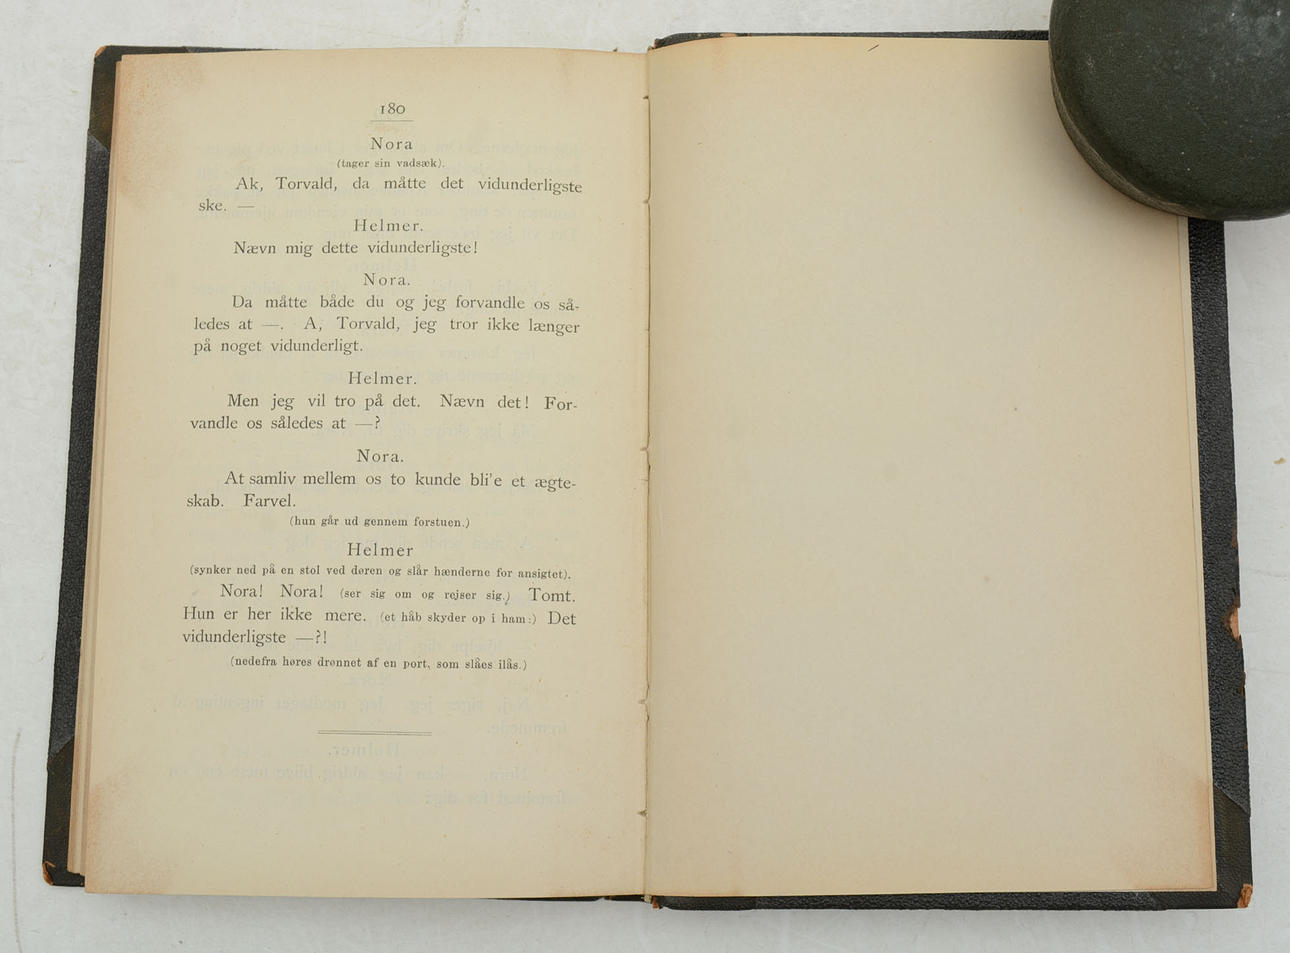 180
Nora
(tager sin vadsæk).
Ak, Torvald, da måtte det vidunderligste
ske. —
Helmer.
Nævn mig dette vidunderligste!
Nora.
Da måtte både du og jeg forvandle os så-
ledes at —. A, Torvald, jeg tror ikke længer
på noget vidunderligt.
Helmer.
Men jeg vil tro på det. Nævn det! For-
vandle os således at —?
Nora.
At samliv mellem os to kunde bli'e et ægte-
skab. Farvel.
(hun går ud gennem forstuen.)
Helmer
(synker ned på en stol ved døren og slår hænderne for ansigtet).
Nora! Nora! (ser sig om og rejser sig.) Tomt.
Hun er her ikke mere. (et håb skyder op i ham:) Det
vidunderligste —?!
(nedefra høres drønnet af en port, som slåes ilås.)